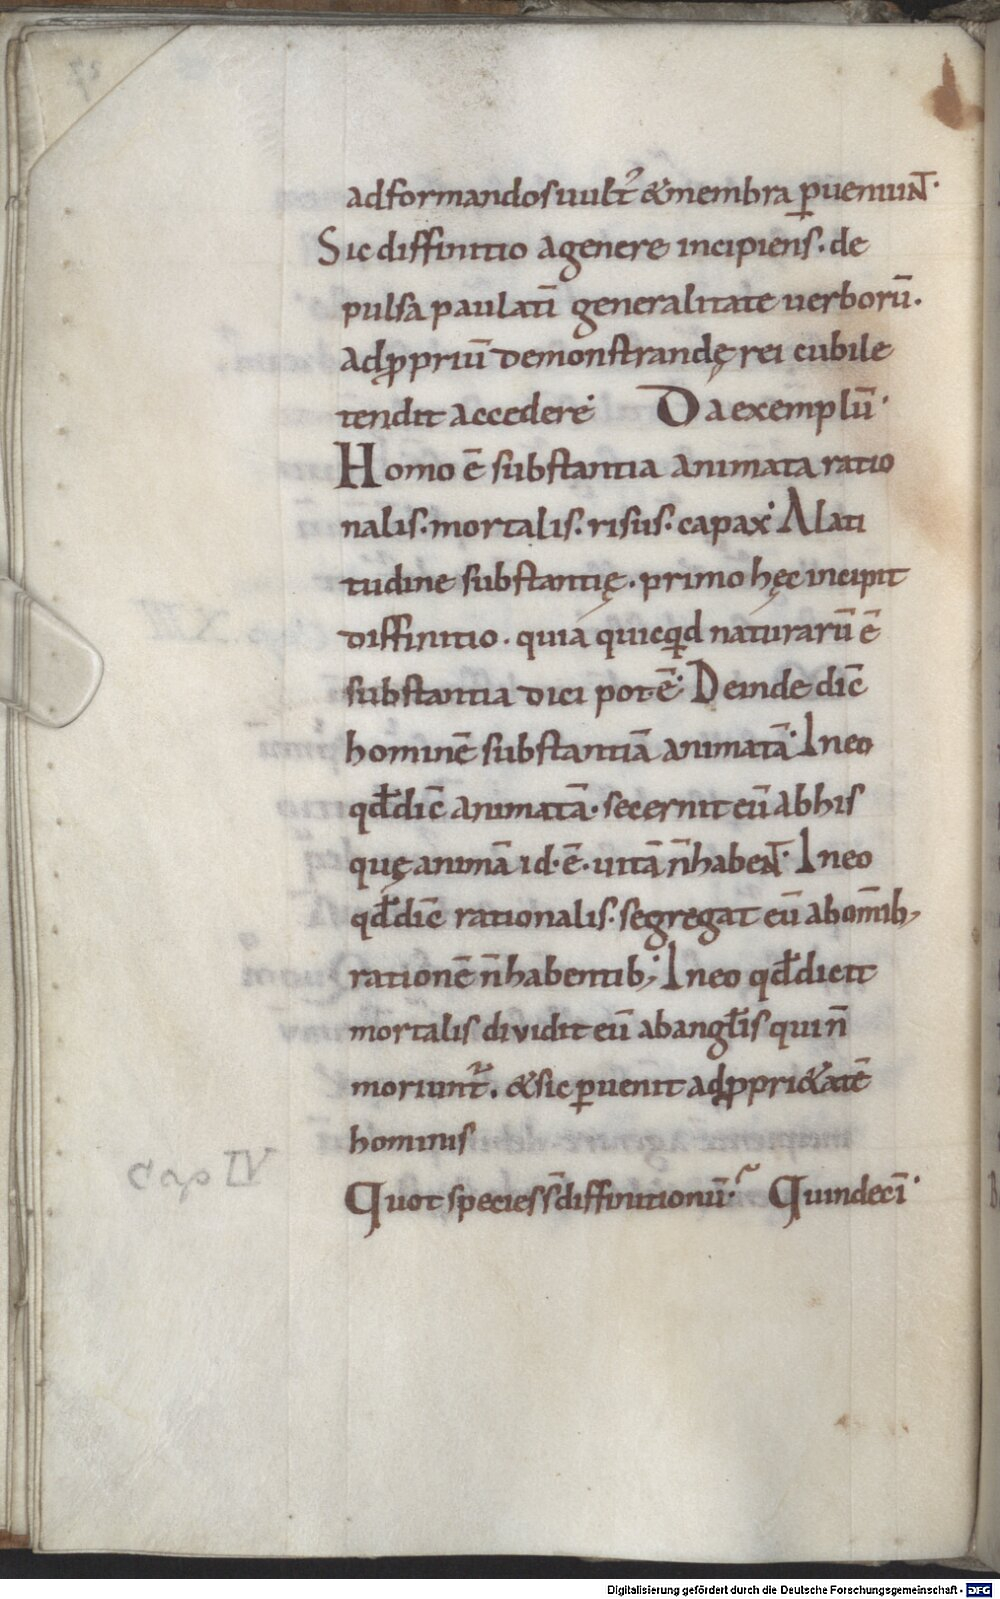 ad formandos uult' & membra p̱ueniuNT.
Sic diffinitio a genere incipiens. de
pulsa paulati̅ generalitate uerboru̅.
ad ꝓpriu̅ demonstrandę rei cubile
tendit accedere Da exemplu̅.
Homo e̅ substantia animata ratio
nalis. mortalis. risus. capax Alati
tudine substantię. primo hęc incipit
diffinitio. quia quicqͥd naturaru̅ e̅
substantia dici pot e̅. Deinde dic̅
homine̅ substantia̅ animata̅. In eo
qđ dic̅ animata̅. secernit eu̅ ab his
quę anima̅ id. e̅. uita̅ n̅ habeNT. In eo
qđ dic̅ rationalis. segregat eu̅ ab om̅ib;
ratione̅ n̅ habentib; In eo qđ dicit
mortalis dividit eu̅ ab angl̅is qui n̅
moriunt᷑. & sic ꝑuenit ad ꝓpri&ate̅
hominis
Quot species s̅ diffinitionu̅. Quindeci̅.
Cap IV
Digitalisierung gefördert durch die Deutsche Forschungsgemeinschaft - DFG